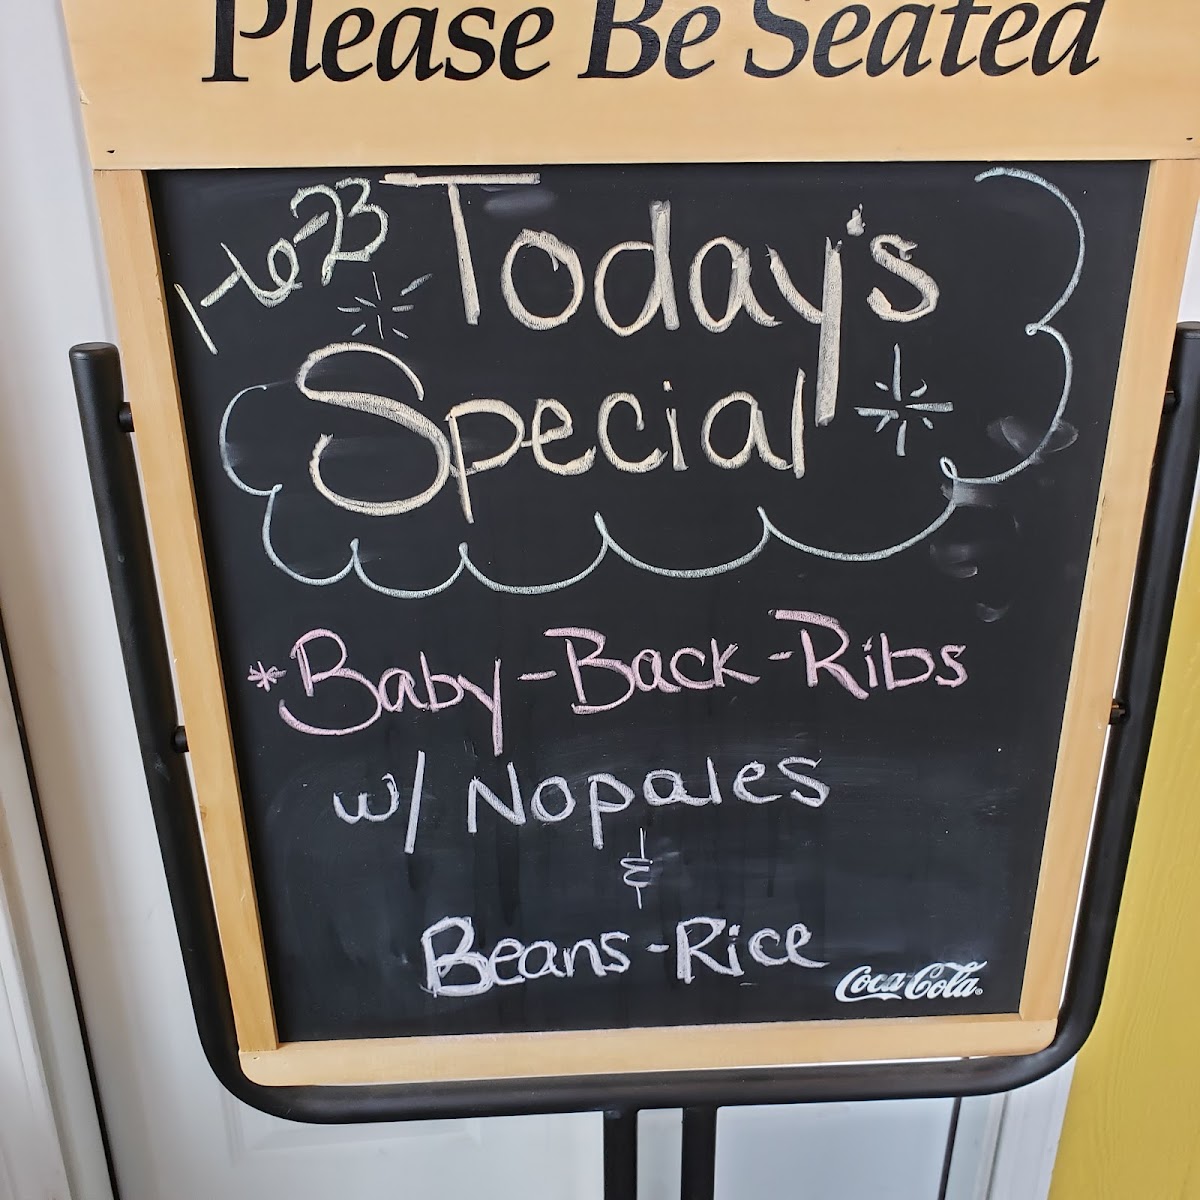 Please Be Seated
1-6-23
Today's
Special
*Baby-Back-Ribs
w/ Nopales
&
Beans-Rice
Coca-Cola